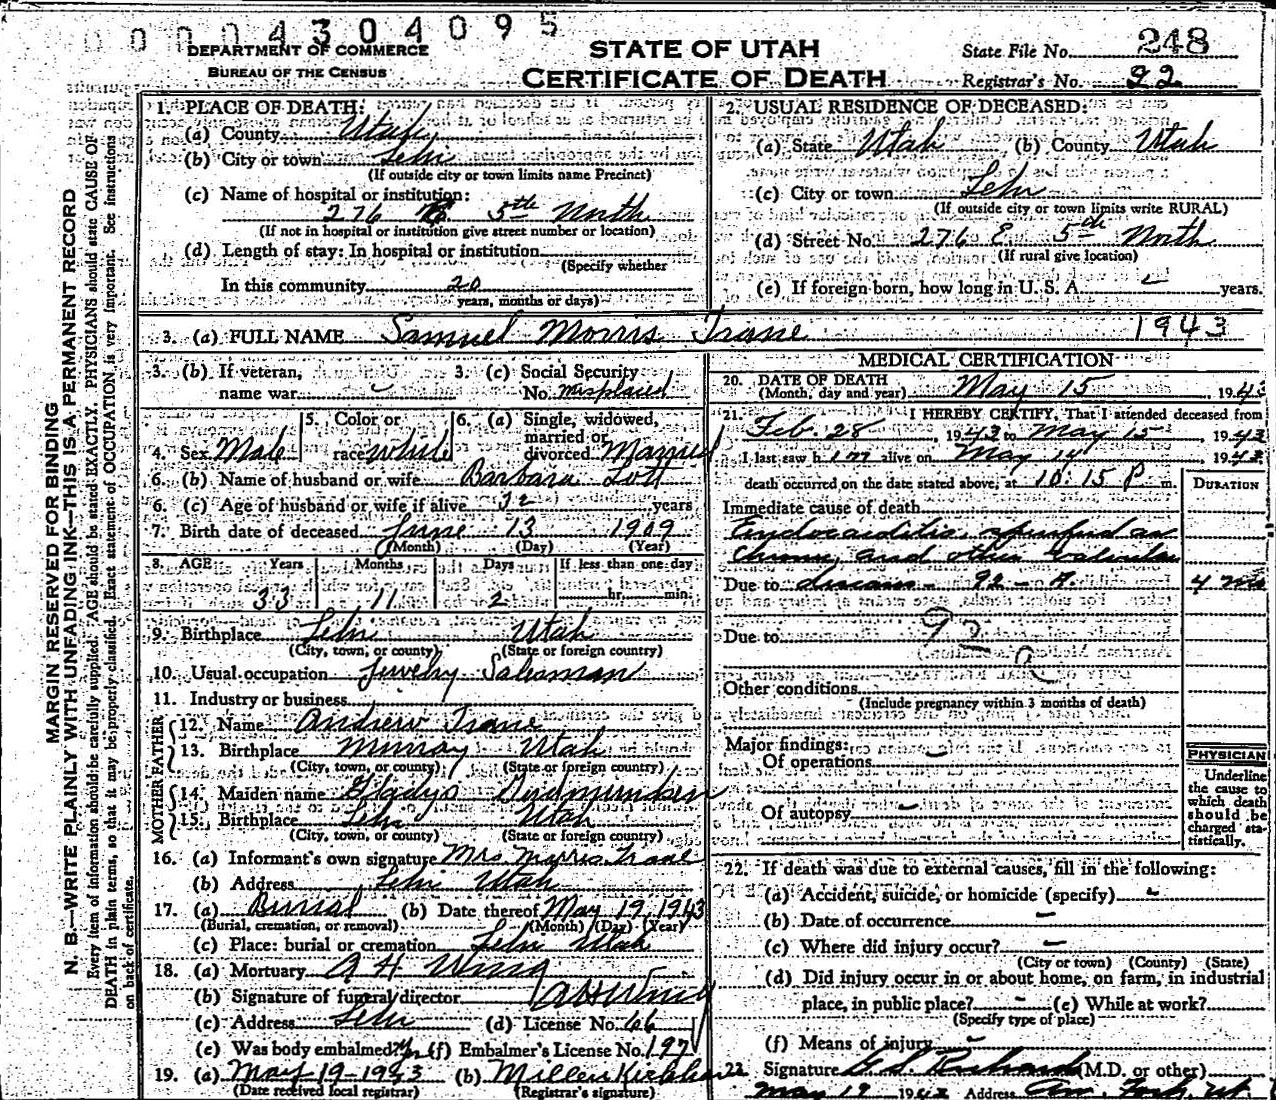 0 0 0 4 3 0 4 0 9 5
DEPARTMENT OF COMMERCE
BUREAU OF THE CENSUS
STATE OF UTAH
CERTIFICATE OF DEATH
State File No. 248
Registrar's No. 22
MARGIN RESERVED FOR BINDING
N. B.—WRITE PLAINLY WITH UNFADING INK—THIS IS A PERMANENT RECORD
Every item of information should be carefully supplied. AGE should be stated EXACTLY. PHYSICIANS should state CAUSE OF
DEATH in plain terms, so that it may be properly classified. Exact statement of OCCUPATION is very important. See instructions
on back of certificate.
1. PLACE OF DEATH:
(a) County Utah
(b) City or town Lehi
(If outside city or town limits name Precinct)
(c) Name of hospital or institution:
276 E. 5th North
(If not in hospital or institution give street number or location)
(d) Length of stay: In hospital or institution
(Specify whether
In this community 20
years, months or days)
2. USUAL RESIDENCE OF DECEASED:
(a) State Utah (b) County Utah
(c) City or town Lehi
(If outside city or town limits write RURAL)
(d) Street No. 276 E 5th North
(If rural give location)
(e) If foreign born, how long in U. S. A. years.
3. (a) FULL NAME Samuel Morris Trane 1943
3. (b) If veteran,
name war
3. (c) Social Security
No. misplaced
4. Sex Male
5. Color or
race white
6. (a) Single, widowed,
married or
divorced Married
6. (b) Name of husband or wife Barbara Lott
6. (c) Age of husband or wife if alive 32 years
7. Birth date of deceased June 13 1909
(Month) (Day) (Year)
8. AGE Years Months Days If less than one day
33 11 2 hr. min.
9. Birthplace Lehi Utah
(City, town, or county) (State or foreign country)
10. Usual occupation Jewelry Salesman
11. Industry or business
FATHER
12. Name Andrew Trane
13. Birthplace Murray Utah
(City, town, or county) (State or foreign country)
MOTHER
14. Maiden name Gladys Gudmundsen
15. Birthplace Lehi Utah
(City, town, or county) (State or foreign country)
16. (a) Informant's own signature Mrs. Morris Trane
(b) Address Lehi Utah
17. (a) Burial (b) Date thereof May 19, 1943
(Burial, cremation, or removal) (Month) (Day) (Year)
(c) Place: burial or cremation Lehi Utah
18. (a) Mortuary A H Wing
(b) Signature of funeral director A H Wing
(c) Address Lehi (d) License No. 66
(e) Was body embalmed? (f) Embalmer's License No. 197
19. (a) May 19-1943 (b)
(Date received local registrar) (Registrar's signature)
MEDICAL CERTIFICATION
20. DATE OF DEATH May 15 1943
(Month, day and year)
21. I HEREBY CERTIFY, That I attended deceased from
Feb. 28, 1943 to May 15 1943
I last saw him alive on May 14 1943
death occurred on the date stated above, at 10:15 P m.
DURATION
Immediate cause of death
Endocarditis, specified as
chronic and other valvular
Due to disease - 92 - A. 4 mo
Due to 92
a
Other conditions
(Include pregnancy within 3 months of death)
Major findings:
Of operations
Of autopsy
PHYSICIAN
Underline
the cause to
which death
should be
charged sta-
tistically.
22. If death was due to external causes, fill in the following:
(a) Accident, suicide, or homicide (specify)
(b) Date of occurrence
(c) Where did injury occur?
(City or town) (County) (State)
(d) Did injury occur in or about home, on farm, in industrial
place, in public place? (e) While at work?
(Specify type of place)
(f) Means of injury
22 Signature (M.D. or other)
May 19 1943 Address Am. Fork, Ut.